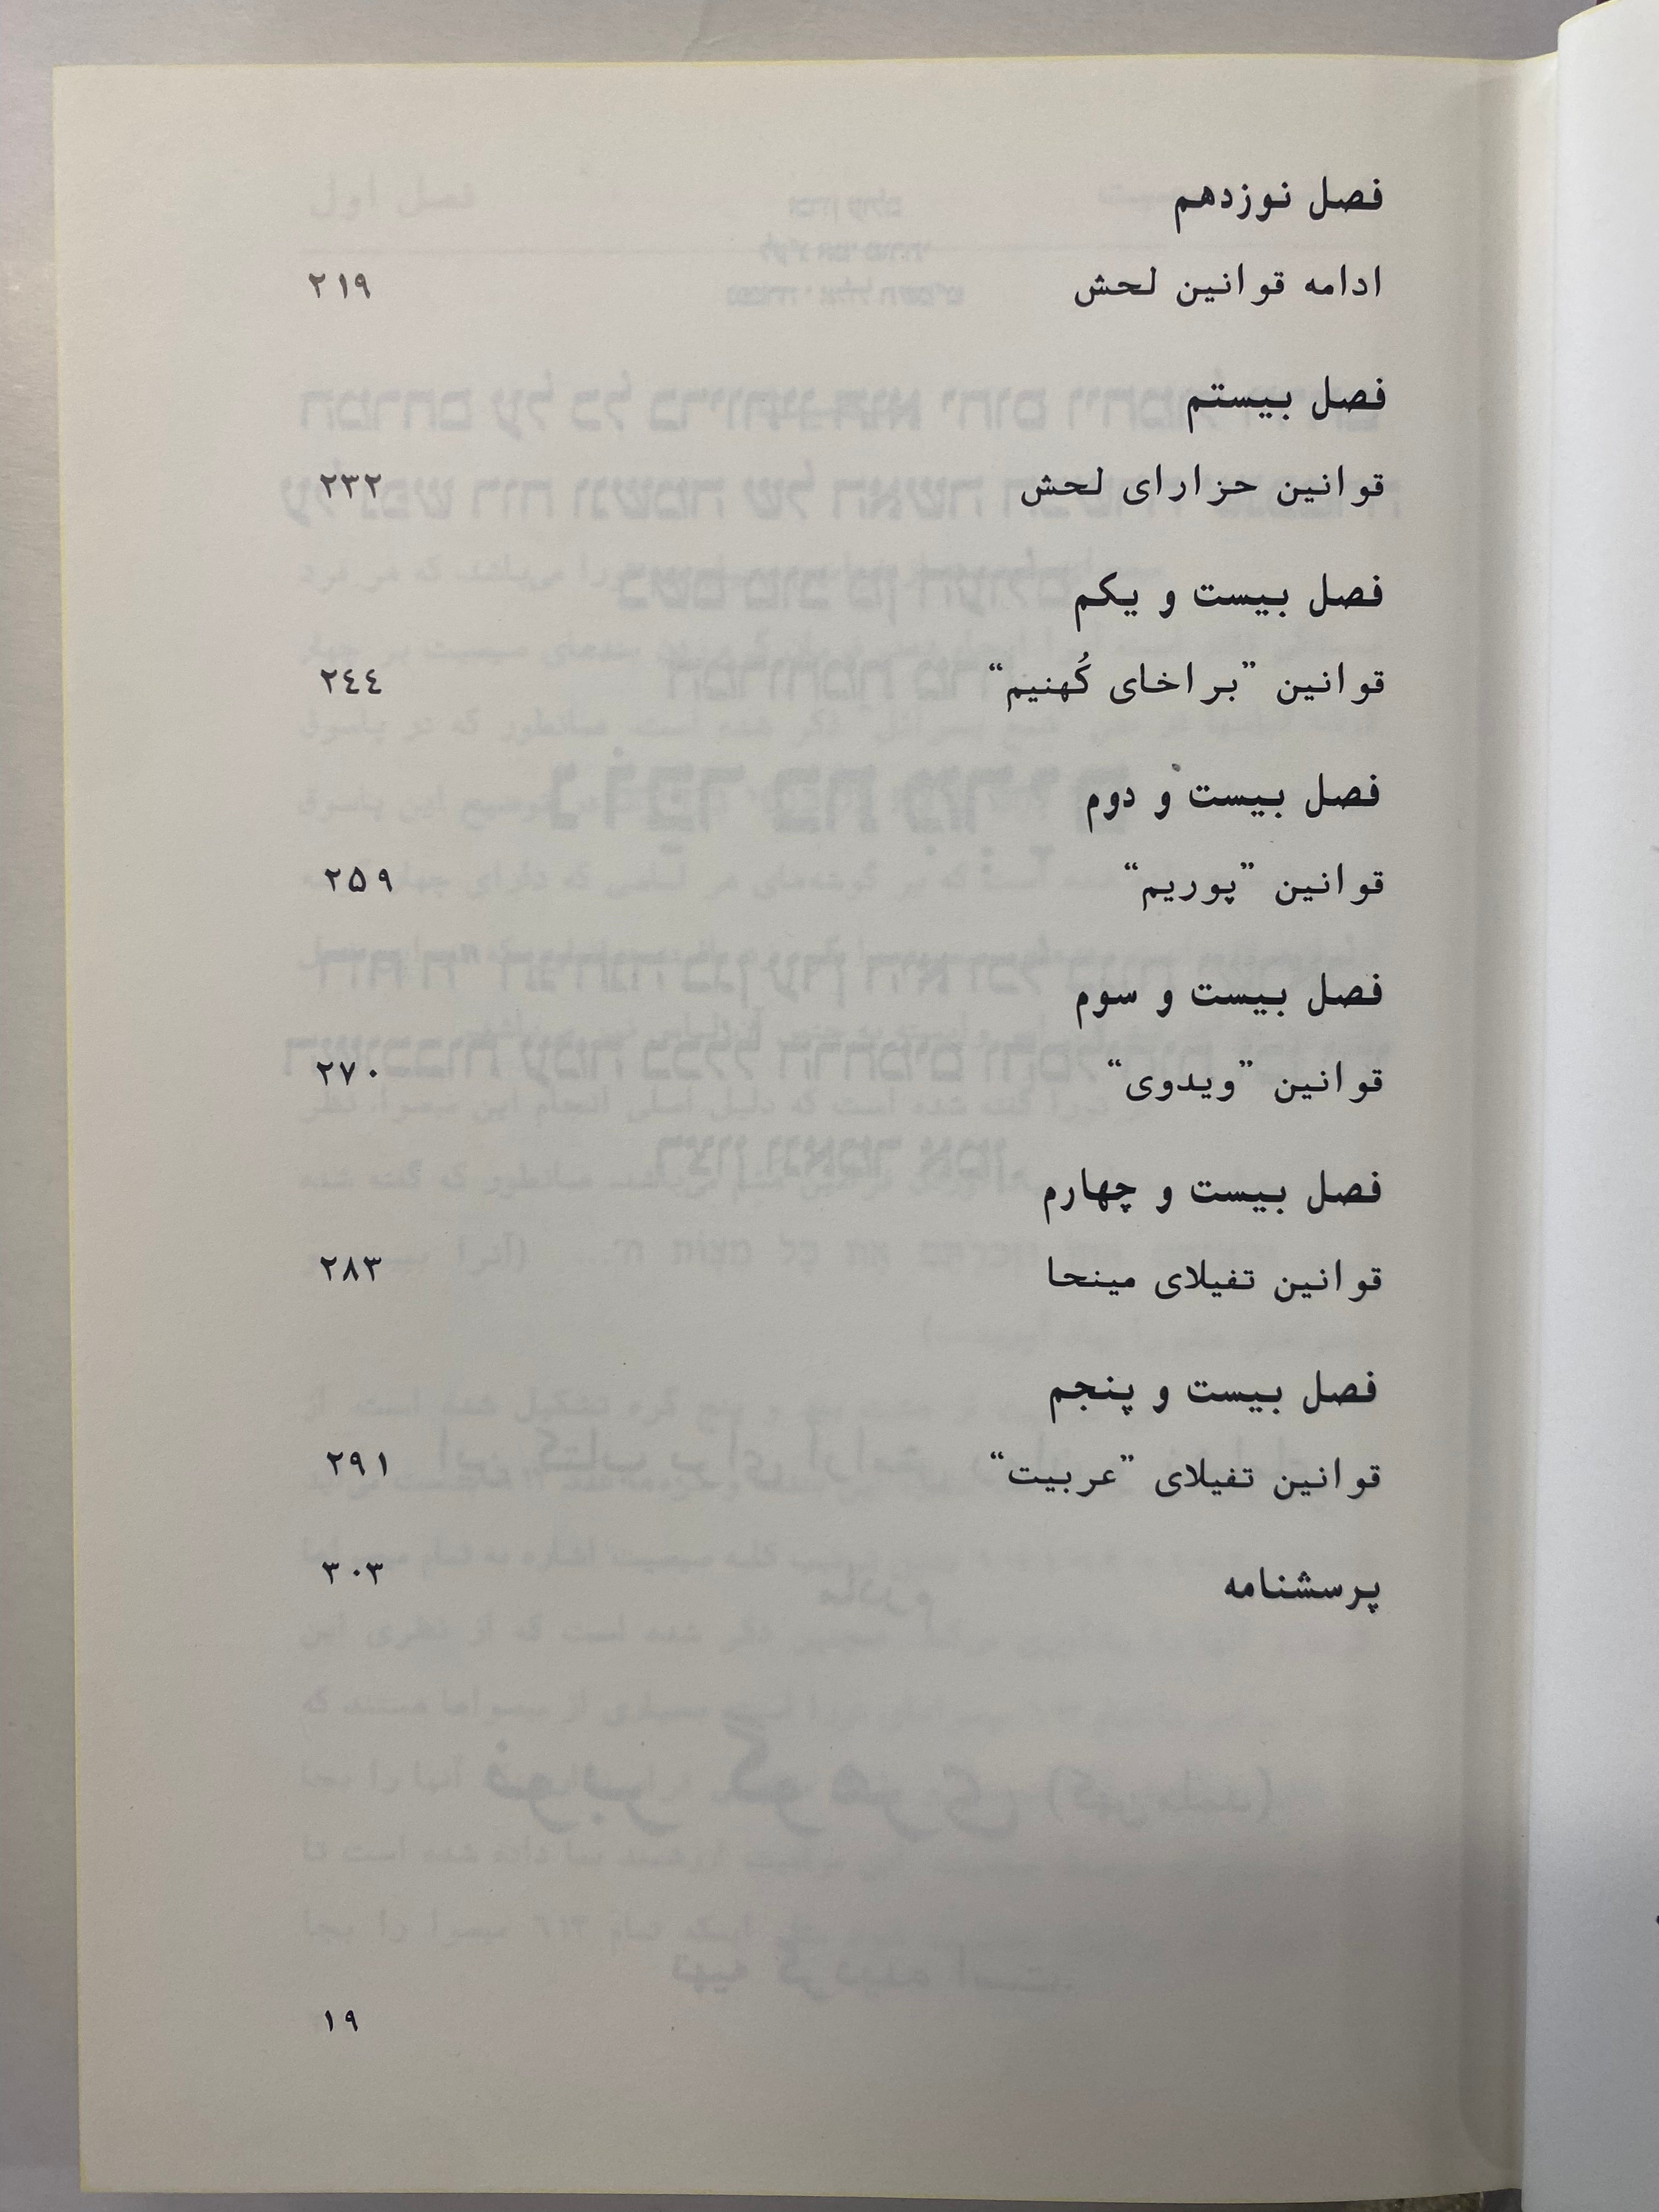 فصل نوزدهم
ادامه قوانین لحش ۲۱۹
فصل بیستم
قوانین حزارای لحش ۲۳۲
فصل بیست و یکم
قوانین ”براخای کُهنیم“ ۲٤٤
فصل بیست و دوم
قوانین ”پوریم“ ۲۵۹
فصل بیست و سوم
قوانین ”ویدوی“ ۲۷۰
فصل بیست و چهارم
قوانین تفیلای مینحا ۲۸۳
فصل بیست و پنجم
قوانین تفیلای ”عربیت“ ۲۹۱
پرسشنامه ۳۰۳
۱۹